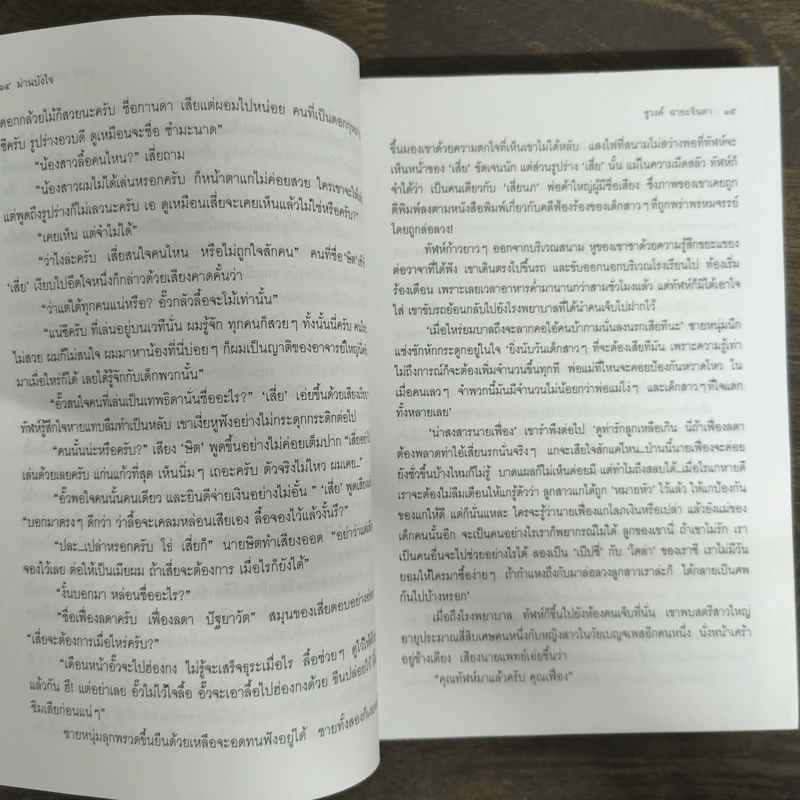 ๑๔ ม่านบังใจ
ดอกกล้วยไม้ก็สวยนะครับ ชื่อกานดา เสียแต่ผอมไปหน่อย คนที่เป็นดอก
ซีครับ รูปร่างอวบดี ดูเหมือนจะชื่อ ชำมะนาด”
“น้องสาวลื้อคนไหน?” เสี่ยถาม
“น้องสาวผมไม่ได้เล่นหรอกครับ ก็หน้าตาแกไม่ค่อยสวย ใครเขาจะให้
แต่พูดถึงรูปร่างก็ไม่เลวนะครับ เอ ดูเหมือนเสี่ยจะเคยเห็นแล้วไม่ใช่หรือครับ?”
“เคยเห็น แต่จำไม่ได้”
“ว่าไงล่ะครับ เสี่ยสนใจคนไหน หรือไม่ถูกใจสักคน” คนที่ชื่อ ‘ษิต’
‘เสี่ย’ เงียบไปอึดใจหนึ่งก็กล่าวด้วยเสียงคาดคั้นว่า
“ว่าแต่ได้ทุกคนแน่หรือ? อั๊วกลัวลื้อจะโม้เท่านั้น”
“แน่ซีครับ ที่เล่นอยู่บนเวทีนั่น ผมรู้จัก ทุกคนก็สวยๆ ทั้งนั้นนี่ครับ
ไม่สวย ผมก็ไม่สนใจ ผมมาหาน้องที่นี่บ่อยๆ ก็ผมเป็นญาติของอาจารย์ใหญ่
มาเมื่อไหร่ก็ได้ เลยได้รู้จักกับเด็กพวกนั้น”
“อั๊วสนใจคนที่เล่นเป็นเทพธิดานั่นชื่ออะไร?” ‘เสี่ย’ เอ่ยขึ้นด้วยเสียง
ทัฬห์รู้สึกใจหายแทบลืมทำเป็นหลับ เขาเงี่ยหูฟังอย่างไม่กระดุกกระดิกต่อไป
“คนนั้นน่ะหรือครับ?” เสียง ‘ษิต’ พูดขึ้นอย่างไม่ค่อยเต็มปาก
เล่นด้วยเลยครับ แก่นแก้วที่สุด เห็นนิ่มๆ เถอะครับ ตัวจริงไม่ไหว ผมเคย...”
“อั๊วพอใจคนนั้นคนเดียว และยินดีจ่ายเงินอย่างไม่อั้น ” ‘เสี่ย’
“บอกมาตรงๆ ดีกว่า ว่าลื้อจะเคลมหล่อนเสียเอง ลื้อจองไว้แล้วงั้นรึ?”
“ปละ...เปล่าหรอกครับ โธ่ เสี่ยก็” นายษิตทำเสียงออด
จองไว้เลย ต่อให้เป็นเมียผม ถ้าเสี่ยจะต้องการ เมื่อไรก็ยังได้”
“งั้นบอกมา หล่อนชื่ออะไร?”
“ชื่อเฟื่องลดาครับ เฟื่องลดา ปัฐยาวัต” สมุนของเสี่ยตอบ
“เสี่ยจะต้องการเมื่อไหร่ครับ?”
“เดือนหน้าอั๊วจะไปฮ่องกง ไม่รู้จะเสร็จธุระเมื่อไร ลื้อช่วยๆ ดูไว้ให้
แล้วกัน ฮึ! แต่อย่าเลย อั๊วไม่ไว้ใจลื้อ อั๊วจะเอาลื้อไปฮ่องกงด้วย ขืนปล่อยไว้
ชิมเสียก่อนแน่ๆ”
ชายหนุ่มลุกพรวดขึ้นยืนด้วยเหลือจะอดทนฟังอยู่ได้ ชายทั้งสอง
ชูวงศ์ ฉายะจินดา ๑๕
ขึ้นมองเขาด้วยความตกใจที่เห็นเขาไม่ได้หลับ แสงไฟที่สนามไม่สว่างพอที่ทัฬห์จะ
เห็นหน้าของ ‘เสี่ย’ ชัดเจนนัก แต่ส่วนรูปร่าง ‘เสี่ย’ นั้น แม้ในความมืดสลัว ทัฬห์ก็
จำได้ว่า เป็นคนเดียวกับ ‘เสี่ยนภ’ พ่อค้าใหญ่ผู้มีชื่อเสียง ซึ่งภาพของเขาเคยถูก
ตีพิมพ์ลงตามหนังสือพิมพ์เกี่ยวกับคดีฟ้องร้องของเด็กสาวๆ ที่ถูกพร่าพรหมจรรย์
โดยถูกล่อลวง!
ทัฬห์ก้าวยาวๆ ออกจากบริเวณสนาม หูของเขาชาด้วยความรู้สึกขยะแขยง
ต่อวาจาที่ได้ฟัง เขาเดินตรงไปขึ้นรถ และขับออกนอกบริเวณโรงเรียนไป ท้องเริ่ม
ร้องเตือน เพราะเลยเวลาอาหารค่ำมานานกว่าสามชั่วโมงแล้ว แต่ทัฬห์ก็มิได้เอาใจ
ใส่ เขาขับรถย้อนกลับไปยังโรงพยาบาลที่ได้นำคนเจ็บไปฝากไว้
‘เมื่อไหร่ยมบาลถึงจะลากคอไอ้คนบ้ากามนั่นลงนรกเสียทีนะ’ ชายหนุ่มนึก
แช่งชักหักกระดูกอยู่ในใจ ‘ยิ่งนับวันเด็กสาวๆ ที่จะต้องเสียทีมัน เพราะความรู้เท่า
ไม่ถึงการณ์ก็จะต้องเพิ่มจำนวนขึ้นทุกที พ่อแม่ที่ไหนจะคอยป้องกันหวาดไหว ใน
เมื่อคนเลวๆ จำพวกนี้มันมีจำนวนไม่น้อยกว่าพ่อแม่โง่ๆ และเด็กสาวๆ ที่ใจแตก
ทั้งหลายเลย’
‘น่าสงสารนายเฟื่อง’ เขารำพึงต่อไป ‘ดูท่ารักลูกเหลือเกิน นี่ถ้าเฟื่องลดา
ต้องพลาดท่าไอ้เสี่ยนรกนั่นจริงๆ แกจะเสียใจสักแค่ไหน...ป่านนี้นายเฟื่องจะค่อย
ยังชั่วขึ้นบ้างไหมก็ไม่รู้ บาดแผลก็ไม่เห็นค่อยมี แต่ทำไมถึงสลบได้...เมื่อไรแกหายดี
เราจะต้องไม่ลืมเตือนให้แกรู้ตัวว่า ลูกสาวแกได้ถูก ‘หมายหัว’ ไว้แล้ว ให้แกป้องกัน
ของแกให้ดี แต่ก็นั่นแหละ ใครจะรู้ว่านายเฟื่องแกโลภเงินหรือเปล่า แล้วยังแม่ของ
เด็กคนนั้นอีก จะเป็นคนอย่างไรเราก็พยากรณ์ไม่ได้ ลูกของเขานี่ ถ้าเขาไม่รัก เรา
เป็นคนอื่นจะไปช่วยอย่างไรได้ ลองเป็น ‘เป๊ปซี่’ กับ ‘โคล่า’ ของเราซี เราไม่มีวัน
ยอมให้ใครมาซื้อง่ายๆ ถ้ากำแหงถึงกับมาล่อลวงลูกสาวเราล่ะก็ ได้กลายเป็นศพ
กันไปบ้างหรอก’
เมื่อถึงโรงพยาบาล ทัฬห์ก็ขึ้นไปยังห้องคนเจ็บที่นั่น เขาพบสตรีสาวใหญ่
อายุประมาณสี่สิบเศษคนหนึ่งกับหญิงสาวในวัยเบญจเพสอีกคนหนึ่ง นั่งหน้าเศร้า
อยู่ข้างเตียง เสียงนายแพทย์เอ่ยขึ้นว่า
“คุณทัฬห์มาแล้วครับ คุณเฟื่อง”